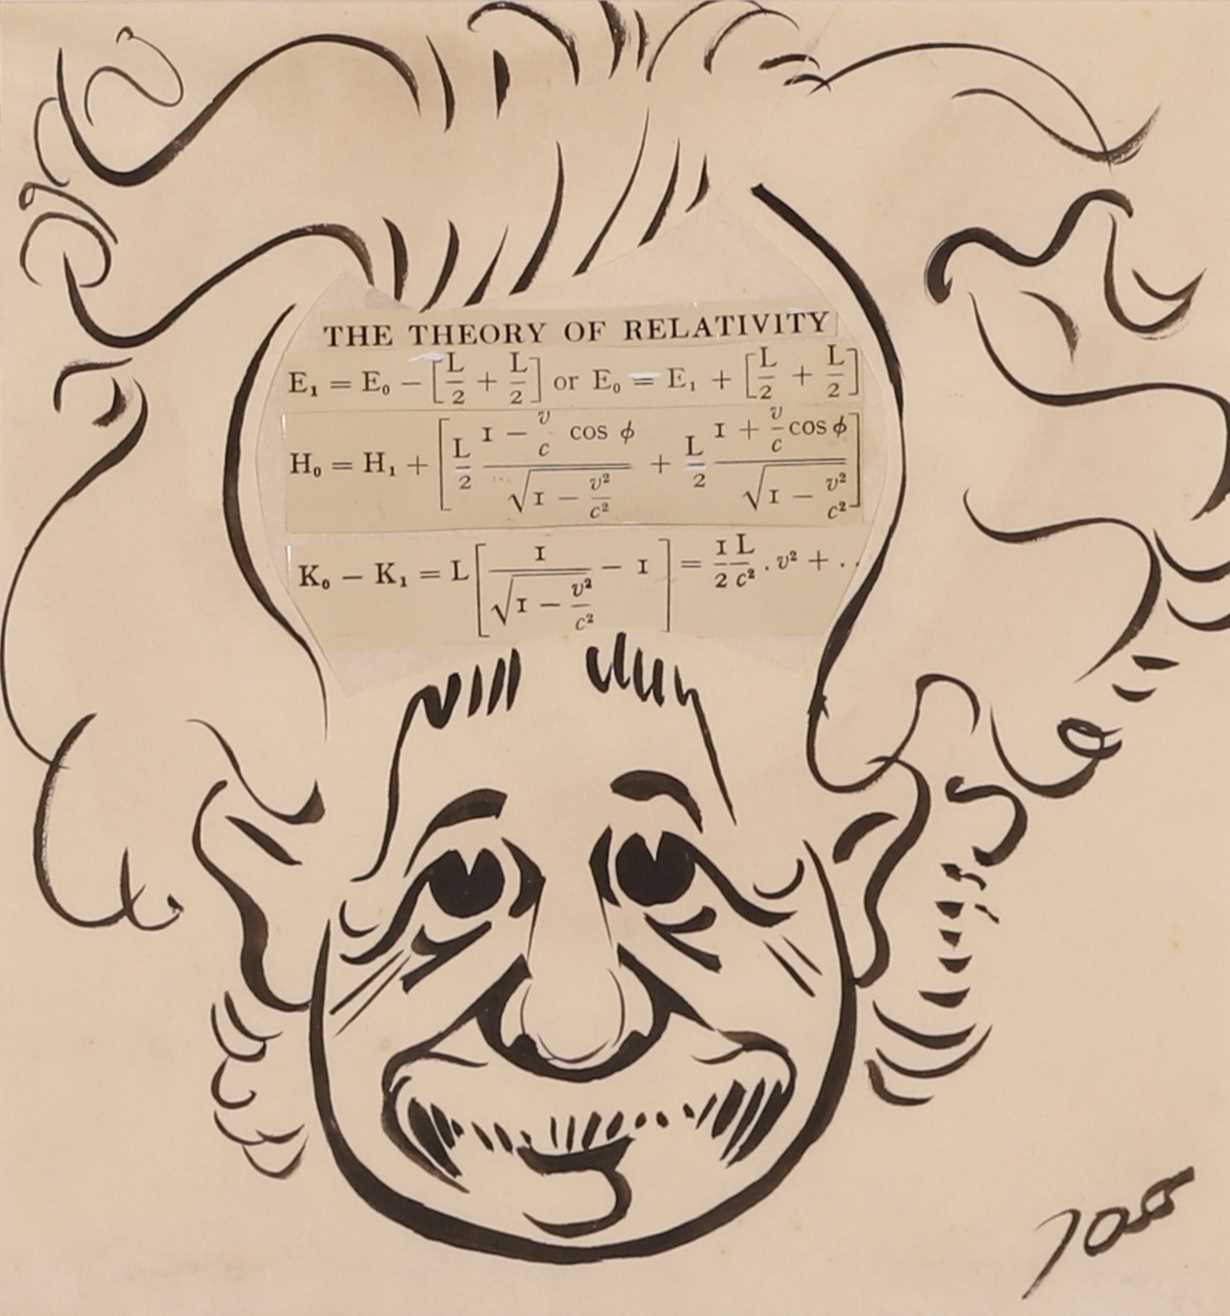 THE THEORY OF RELATIVITY
E₁ = E₀ − [L/2 + L/2] or E₀ = E₁ + [L/2 + L/2]
H₀ = H₁ + [L/2 (1 − v/c cos ϕ)/√(1 − v²/c²) + L/2 (1 + v/c cos ϕ)/√(1 − v²/c²)]
K₀ − K₁ = L[1/√(1 − v²/c²) − 1] = 1/2 L/c² . v² + ..